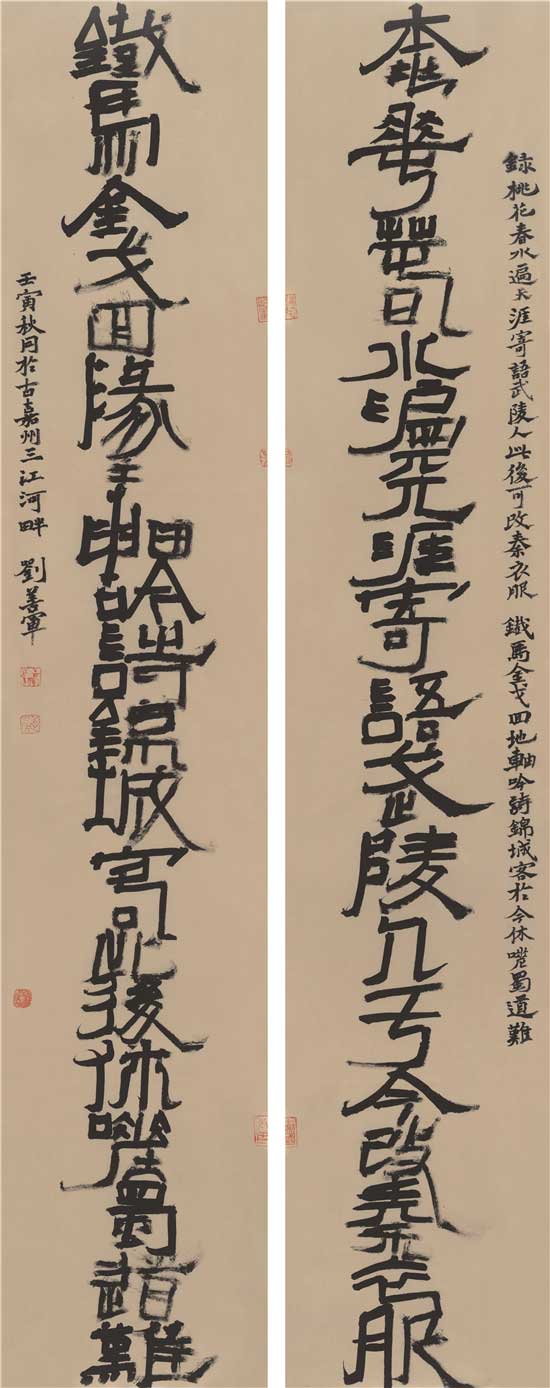 録桃花春水遍天涯寄語武陵人此後可改秦衣服 鐵馬金戈回地軸吟詩錦城客於今休嗟蜀道難
桃華春水遍天涯寄語武陵人亏今改秦衣服
鐵馬金戈回墬軸吟詩錦城客此後休嗟蜀道難
壬寅秋月於古嘉州三江河畔 劉善軍